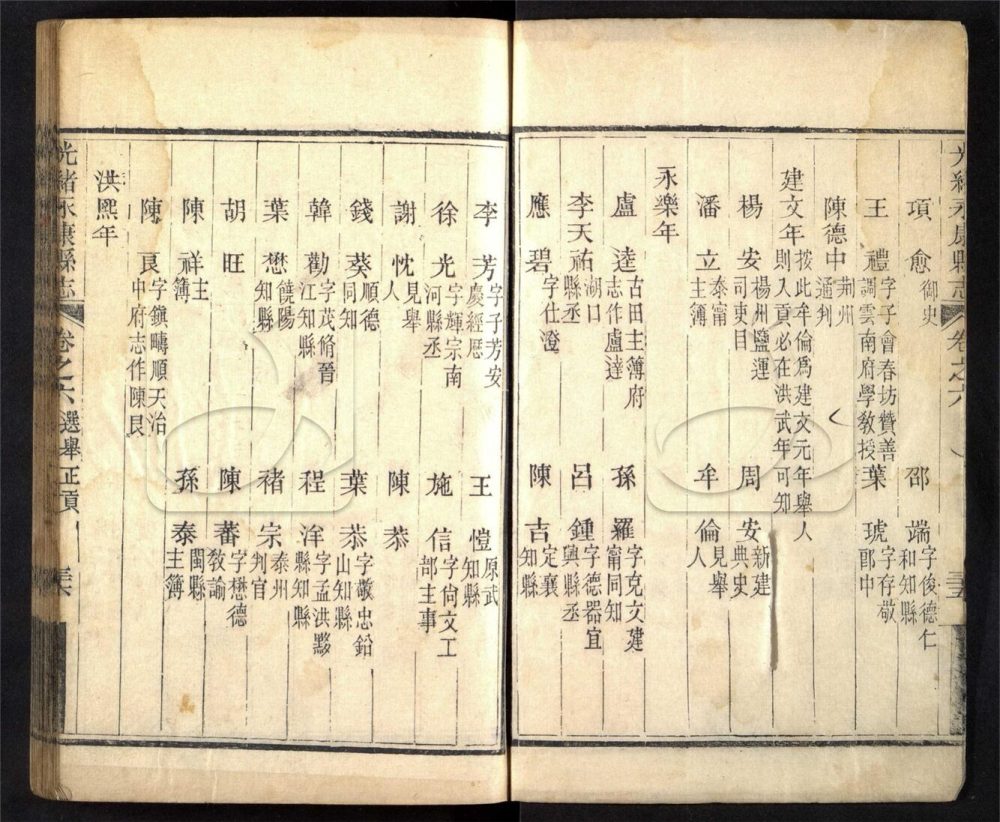 光緒永康縣志 卷之六
項愈 御史 邵端 字俊德仁和知縣
王禮 字子會春坊贊善調雲南府學教授 葉琥 字存敬郎中
陳德中 荊州通判
建文年 按此牟倫爲建文元年舉人則入貢必在洪武年可知
楊安 楊州鹽運司吏目 周安 新建典史
潘立 泰甯主簿 牟倫 見舉人
永樂年
盧逵 古田主簿府志作盧達 孫羅 字克文建甯同知
李天祐 湖口縣丞 呂鍾 字德器宜興縣丞
應碧 字仕澄 陳吉 定襄知縣
李芳 字子芳安慶經歷 王愷 原武知縣
徐光 字輝宗南河縣丞 施信 字尙文工部主事
謝忱 見舉人 陳恭
錢葵 順德同知 葉恭 字敬忠鉛山知縣
韓勸 字茂脩晉江知縣 程洋 字孟洪黟縣知縣
葉懋 饒陽知縣 禇宗 泰州判官
胡旺 陳蕃 字懋德教諭
陳祥 主簿 孫泰 閩縣主簿
陳良 字鎮疇順天治中府志作陳艮
洪熙年
光緒永康縣志 卷之六 選舉 正貢